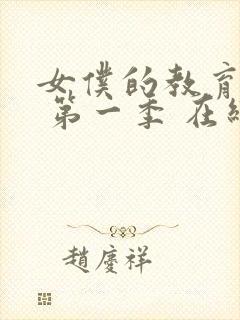 女僕的教育
第一季 在
趙慶祥